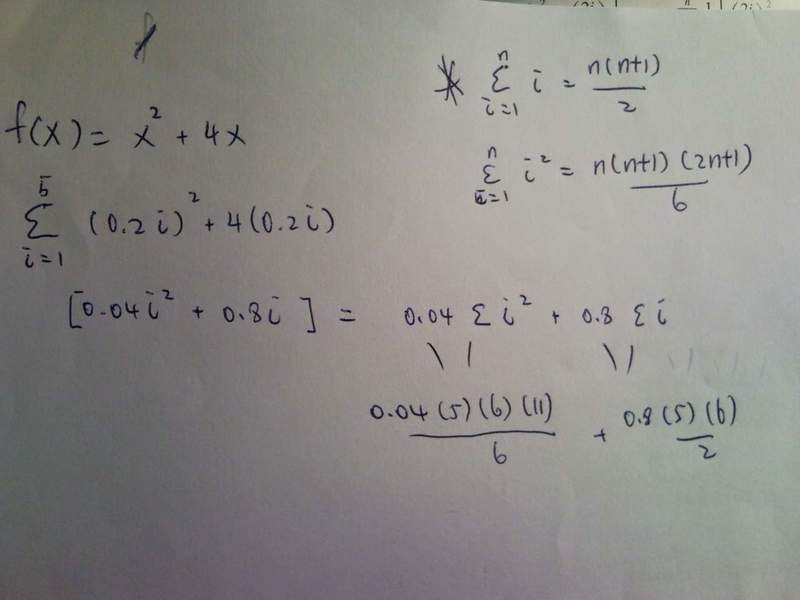 * \sum_{i=1}^{n} i = \frac{n(n+1)}{2}
f(x) = x^2 + 4x
\sum_{i=1}^{n} i^2 = \frac{n(n+1)(2n+1)}{6}
\sum_{i=1}^{5} (0.2i)^2 + 4(0.2i)
[0.04i^2 + 0.8i] = 0.04 Σi^2 + 0.8 Σi
\frac{0.04(5)(6)(11)}{6} + \frac{0.8(5)(6)}{2}